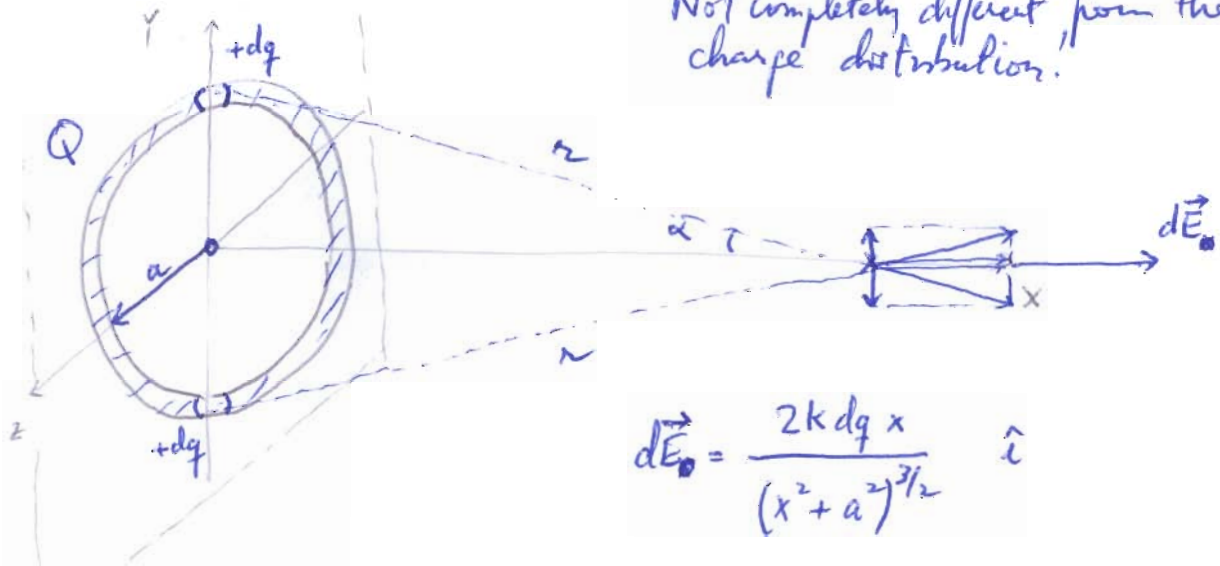 Not completely different from the
charge distribution!
Y
+dq
Q
r
α
dE⃗
a
x
r
z
+dq
dE⃗ = 2k dq x / (x² + a²)^3/2 î